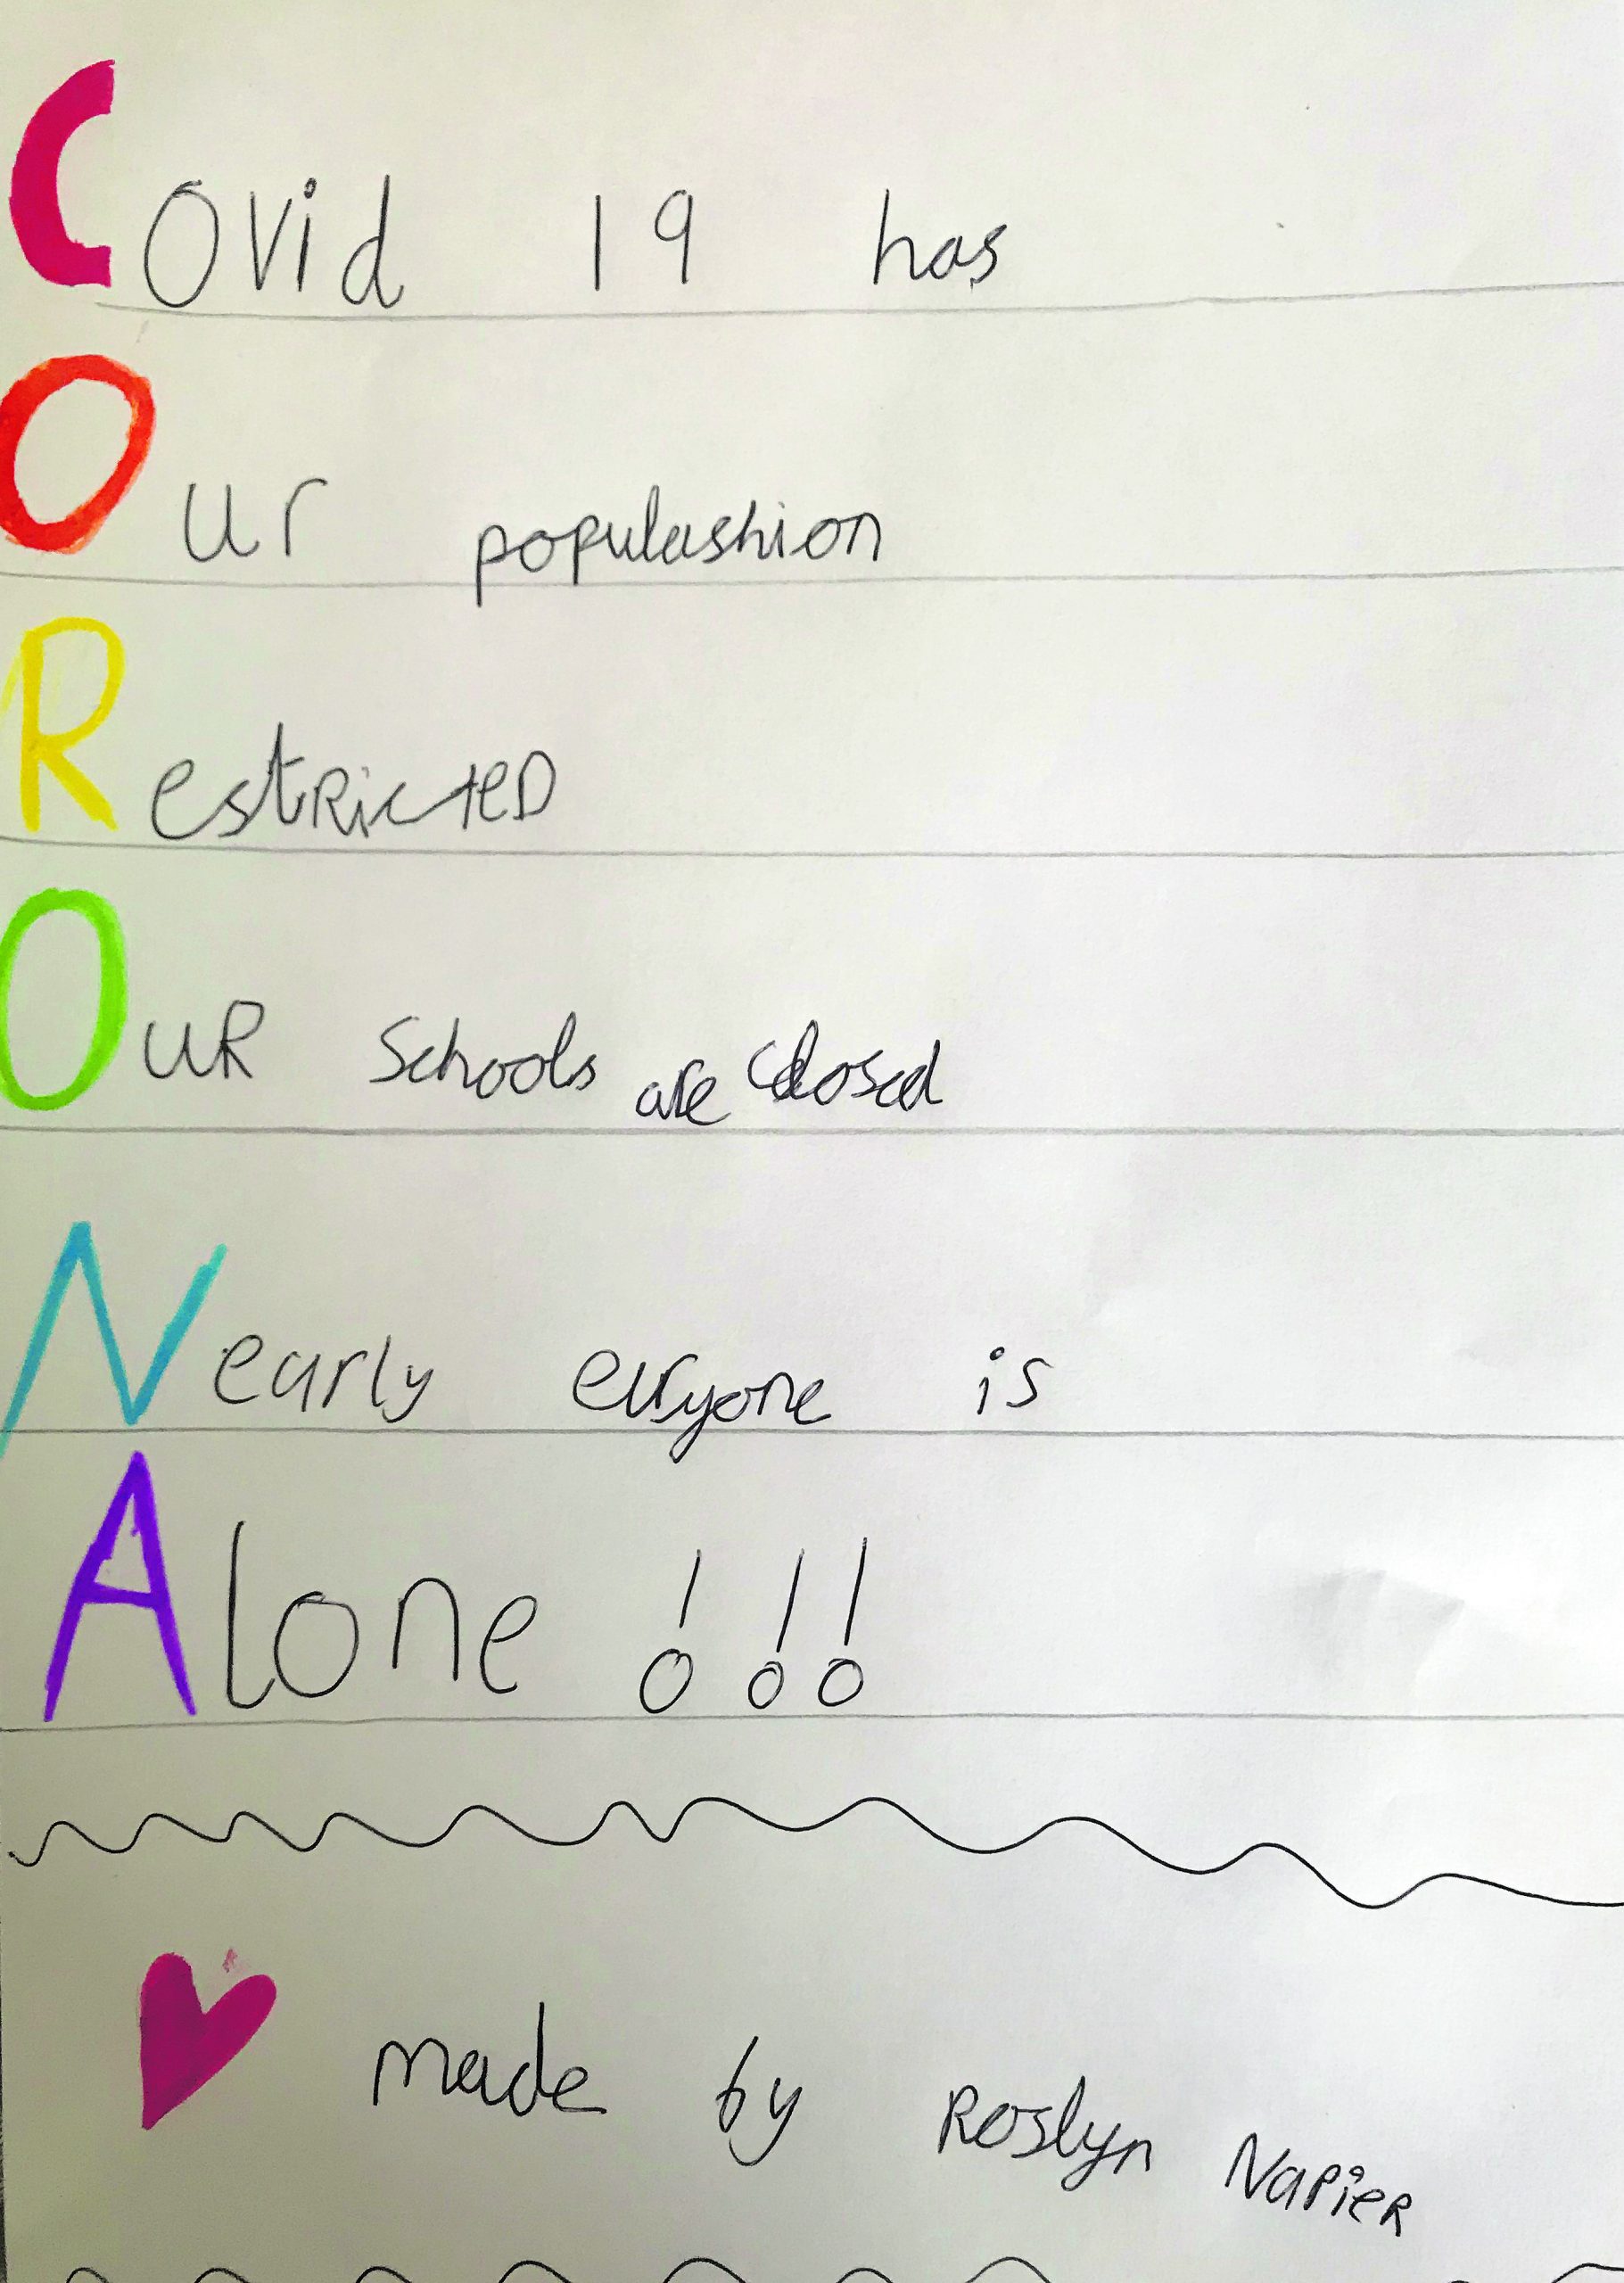 Covid 19 has
Our populashion
RestRicteD
OuR Schools are closed
Nearly evryone is
Alone !!!
made by Roslyn NaPieR